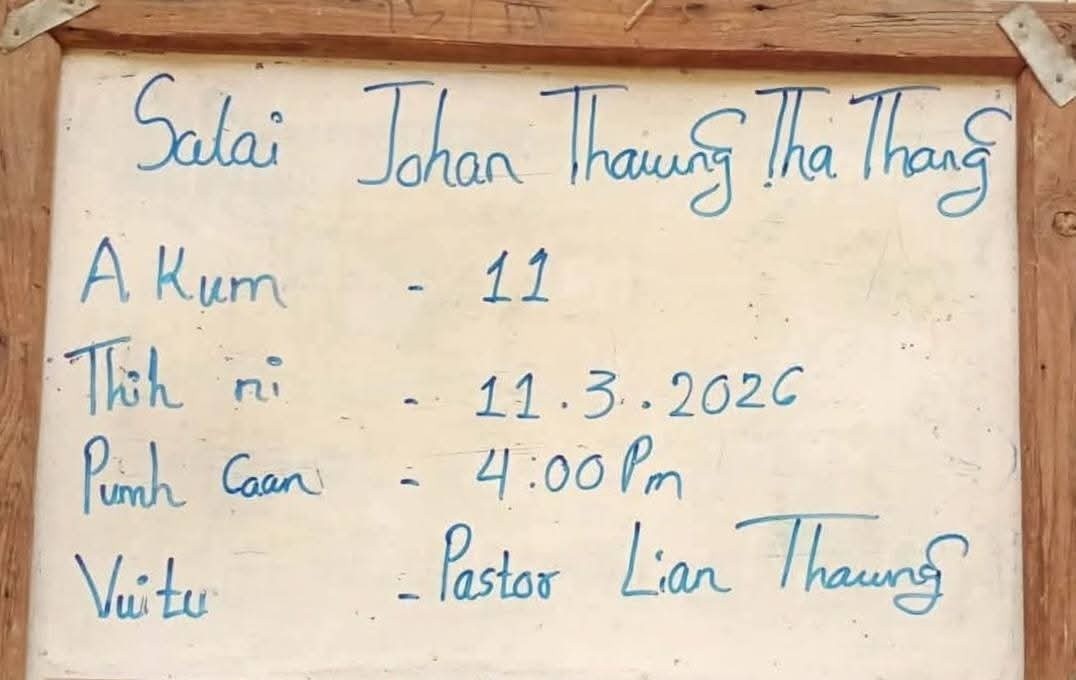 Salai Johan Thawng Tha Thang
A Kum - 11
Thih ni - 11.3.2026
Pumh Caan - 4:00 Pm
Vuitu - Pastor Lian Thawng